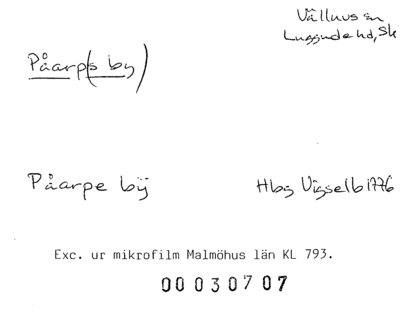 Välluvs sn
Luggude hd, Sk
Påarp(s by)
Påarpe bÿ
Hbg Vigselb 1776
Exc. ur mikrofilm Malmöhus län KL 793.
00030707